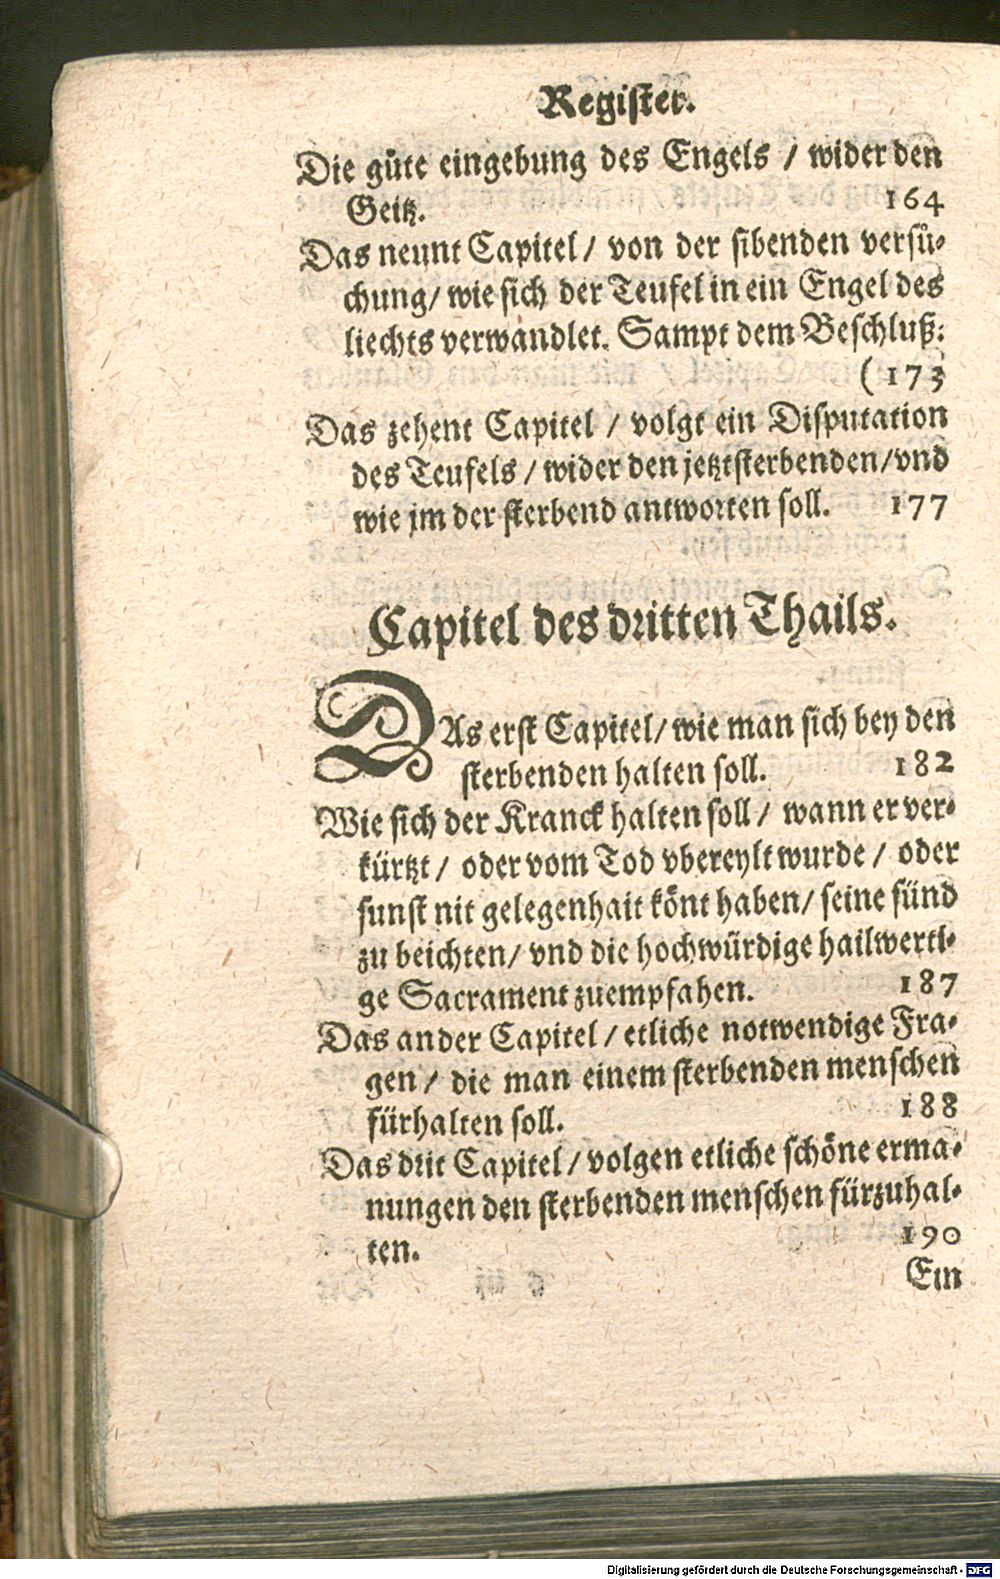 Register.
Die gůte eingebung des Engels / wider den
Geitz. 164
Das neunt Capitel / von der sibenden versů-
chung / wie sich der Teufel in ein Engel des
liechts verwandlet. Sampt dem Beschluß.
(173
Das zehent Capitel / volgt ein Disputation
des Teufels / wider den jetztsterbenden / vnd
wie jm der sterbend antworten soll. 177
Capitel des dritten Thails.
DAs erst Capitel / wie man sich bey den
sterbenden halten soll. 182
Wie sich der Kranck halten soll / wann er ver-
kürtzt / oder vom Tod vbereylt wurde / oder
sunst nit gelegenhait könt haben / seine sünd
zu beichten / vnd die hochwürdige hailwerti-
ge Sacrament zuempfahen. 187
Das ander Capitel / etliche notwendige Fra-
gen / die man einem sterbenden menschen
fürhalten soll. 188
Das drit Capitel / volgen etliche schöne erma-
nungen den sterbenden menschen fürzuhal-
ten. 190
Ein
Digitalisierung gefördert durch die Deutsche Forschungsgemeinschaft - DFG